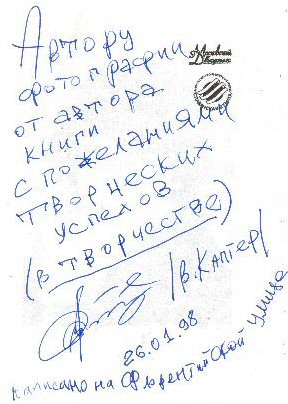 Автору
фотографии
от автора
книги
с пожеланиями
творческих
успехов
(в творчестве)
/В. Каптер/
26.01.98
написано на Флорентийской улице
Московский
Дворик